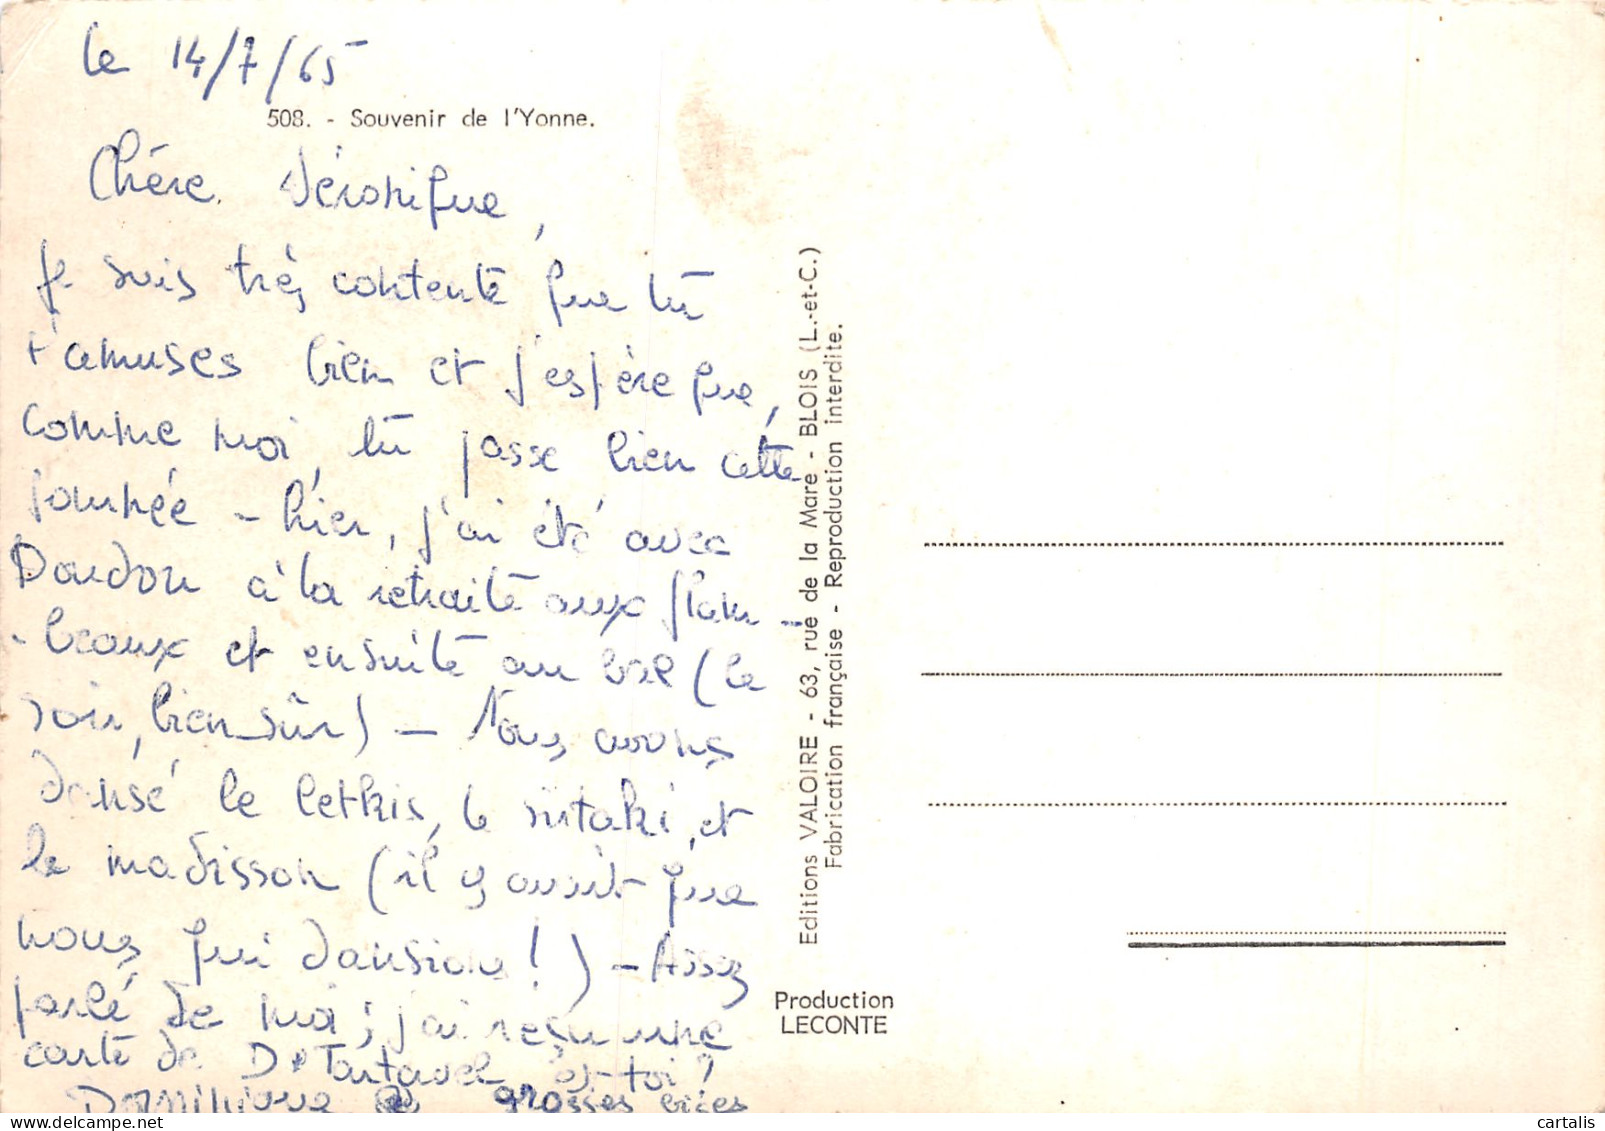 le 14/7/65
508. - Souvenir de l'Yonne.
Chère Véronique,
je suis très contente que tu
t'amuses bien et j'espère que,
comme moi, tu passe bien cette
journée - hier, j'ai été avec
Doudou à la retraite aux flam-
-beaux et ensuite au bal (le
soir, bien sûr) - Nous avons
dansé le letkis, le sirtaki, et
le madisson (il y avait que
nous qui dansions !) - Assez
parlé de moi ; j'ai reçu une
carte de D. Tartavel et toi ?
Dominique grosses bises
Editions VALOIRE - 63, rue de la Mare - BLOIS (L.-et-C.)
Fabrication française - Reproduction interdite.
Production
LECONTE
cartalis